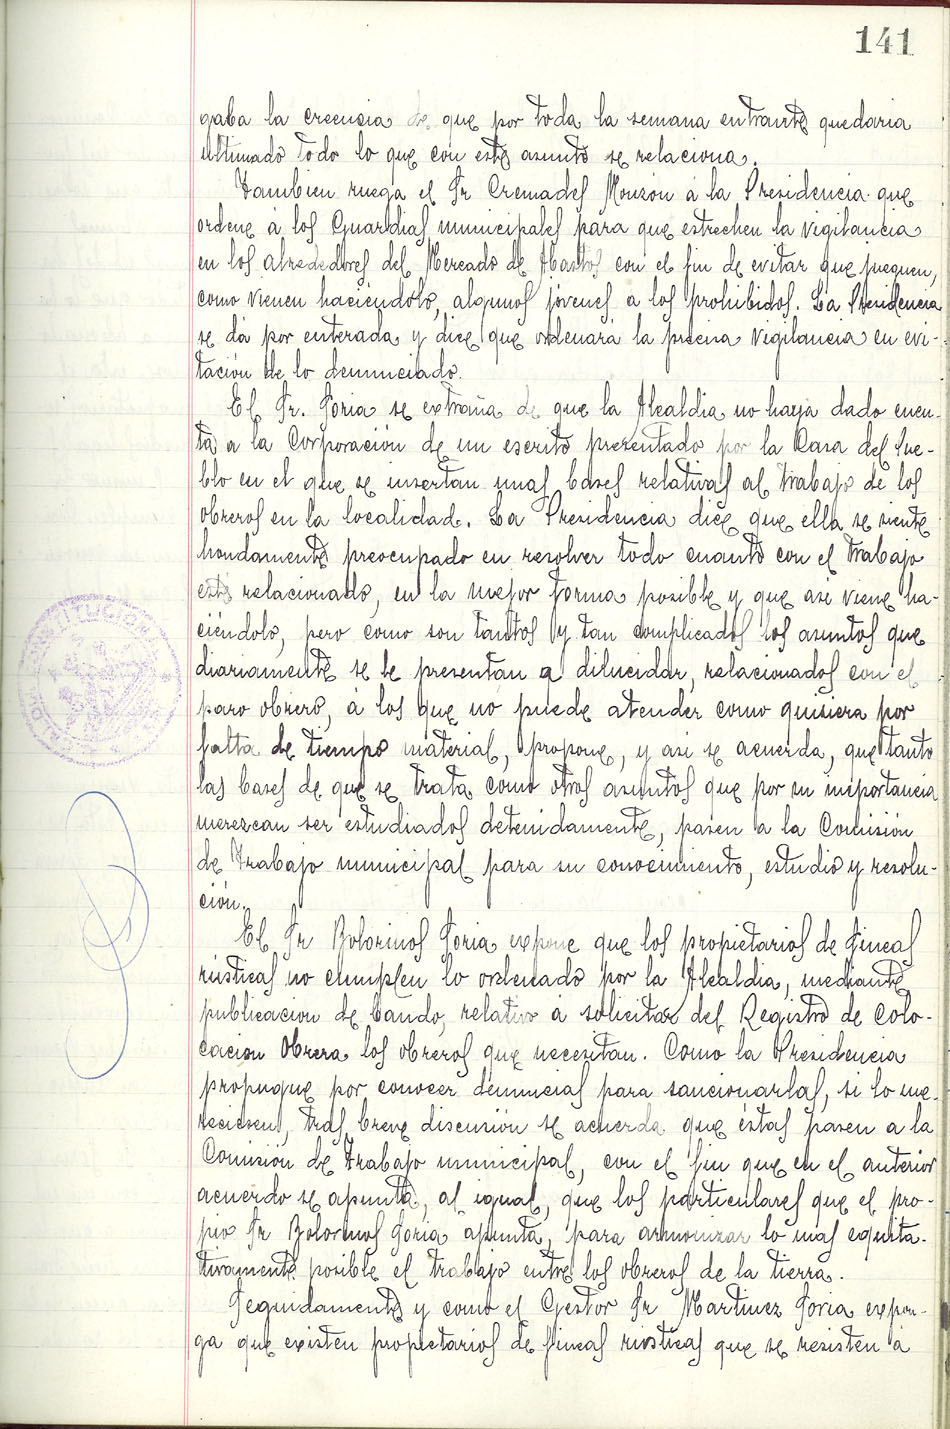 141
gaba la creencia de que por toda la semana entrante quedaria
ultimado todo lo que con este asunto se relaciona.
Tambien ruega el Sr. Cremades Monzón a la Presidencia que
ordene á los Guardias municipales para que estrechen la vigilancia
en los alrededores del Mercado de Abastos con el fin de evitar que jueguen,
como vienen haciéndolo, algunos jóvenes a los prohibidos. La Presidencia
se dá por enterada y dice que ordenará la precisa vigilancia en evi-
tación de lo denunciado.
El Sr. Soria se extraña de que la Alcaldia no haya dado cuen-
ta a la Corporación de un escrito presentado por la Casa del Pue-
blo en el que se insertan unas bases relativas al trabajo de los
obreros en la localidad. La Presidencia dice que ella se siente
hondamente preocupado en resolver todo cuanto con el trabajo
esté relacionado, en la mejor forma posible y que asi viene ha-
ciéndolo, pero como son tantos y tan complicados los asuntos que
diariamente se le presentan a dilucidar, relacionados con el
paro obrero, á los que no puede atender como quisiera por
falta de tiempo material, propone, y asi se acuerda, que tanto
las bases de que se trata como otros asuntos que por su importancia
merezcan ser estudiados detenidamente, pasen a la Comisión
de Trabajo municipal para su conocimiento, estudio y resolu-
ción.
El Sr Bolorinos Soria expone que los propietarios de fincas
rústicas no cumplen lo ordenado por la Alcaldia, mediante
publicacion de bando, relativo á solicitar del Registro de Colo-
cacion Obrera los obreros que necesitan. Como la Presidencia
propugne por conocer denuncias para sancionarlas, si lo me-
reciesen, tras breve discusión se acuerda que éstas pasen a la
Comisión de Trabajo municipal, con el fin que en el anterior
acuerdo se apunta, al igual, que los particulares que el pro-
pio Sr Bolorinos Soria apunta, para armonizar lo mas equita-
tivamente posible el trabajo entre los obreros de la tierra.
Seguidamente y como el Gestor Sr Martinez Soria expon-
ga que existen propietarios de fincas rústicas que se resisten á